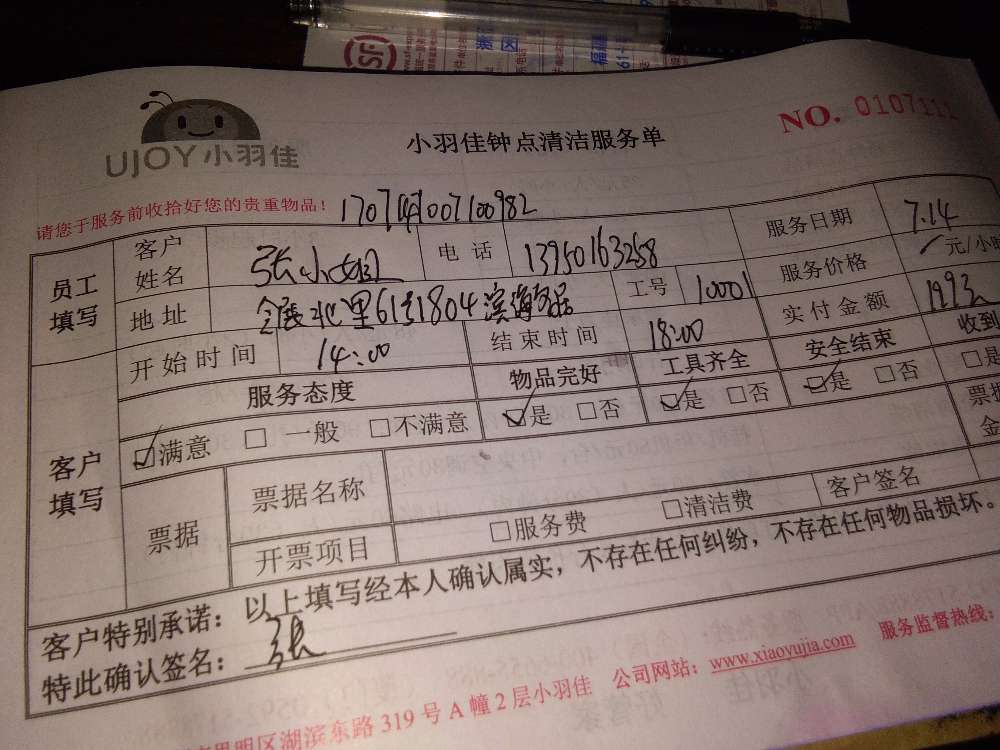 SF
UJOY小羽佳
小羽佳钟点清洁服务单
NO. 0107111
请您于服务前收拾好您的贵重物品!
员工填写 客户姓名 张小姐 电话 13950163258 服务日期 7.14
地址 会展北里61号1804 工号 10001 服务价格 元/小时
开始时间 14:00 结束时间 18:00 实付金额
客户填写 服务态度 物品完好 工具齐全 安全结束 收到
☑满意 □一般 □不满意 ☑是 □否 ☑是 □否 ☑是 □否 □是
票据 票据名称 票据
开票项目 □服务费 □清洁费 客户签名
客户特别承诺:以上填写经本人确认属实,不存在任何纠纷,不存在任何物品损坏。
特此确认签名:张
思明区湖滨东路319号A幢2层小羽佳 公司网站:www.xiaoyujia.com 服务监督热线: